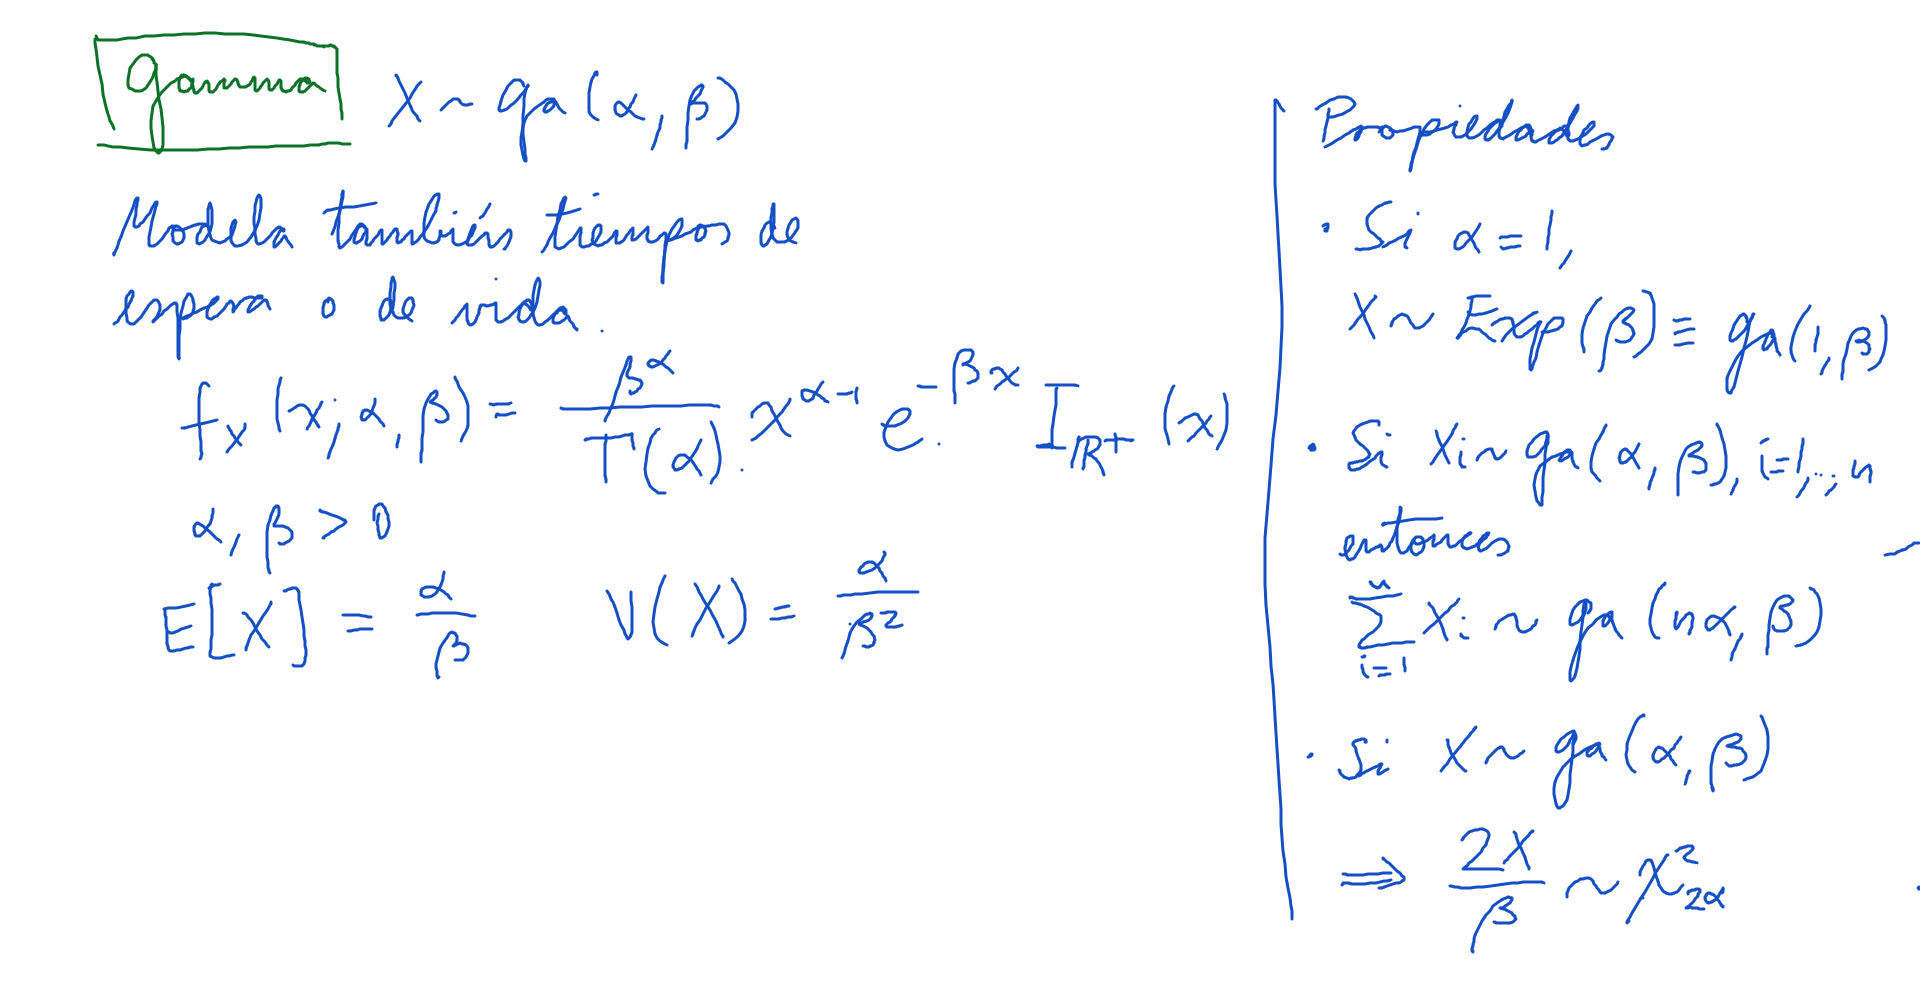 Gamma X ~ ga(α, β)
Modela también tiempos de
espera o de vida.
f_X(x; α, β) = β^α / Γ(α) · x^{α-1} e^{-βx} I_{ℝ+}(x)
α, β > 0
E[X] = α/β V(X) = α/β²
Propiedades
· Si α = 1,
X ~ Exp(β) ≡ ga(1, β)
· Si Xi ~ ga(α, β), i=1,..,n
entonces
∑_{i=1}^{n} Xi ~ ga(nα, β)
· Si X ~ ga(α, β)
⇒ 2X/β ~ χ²_{2α}